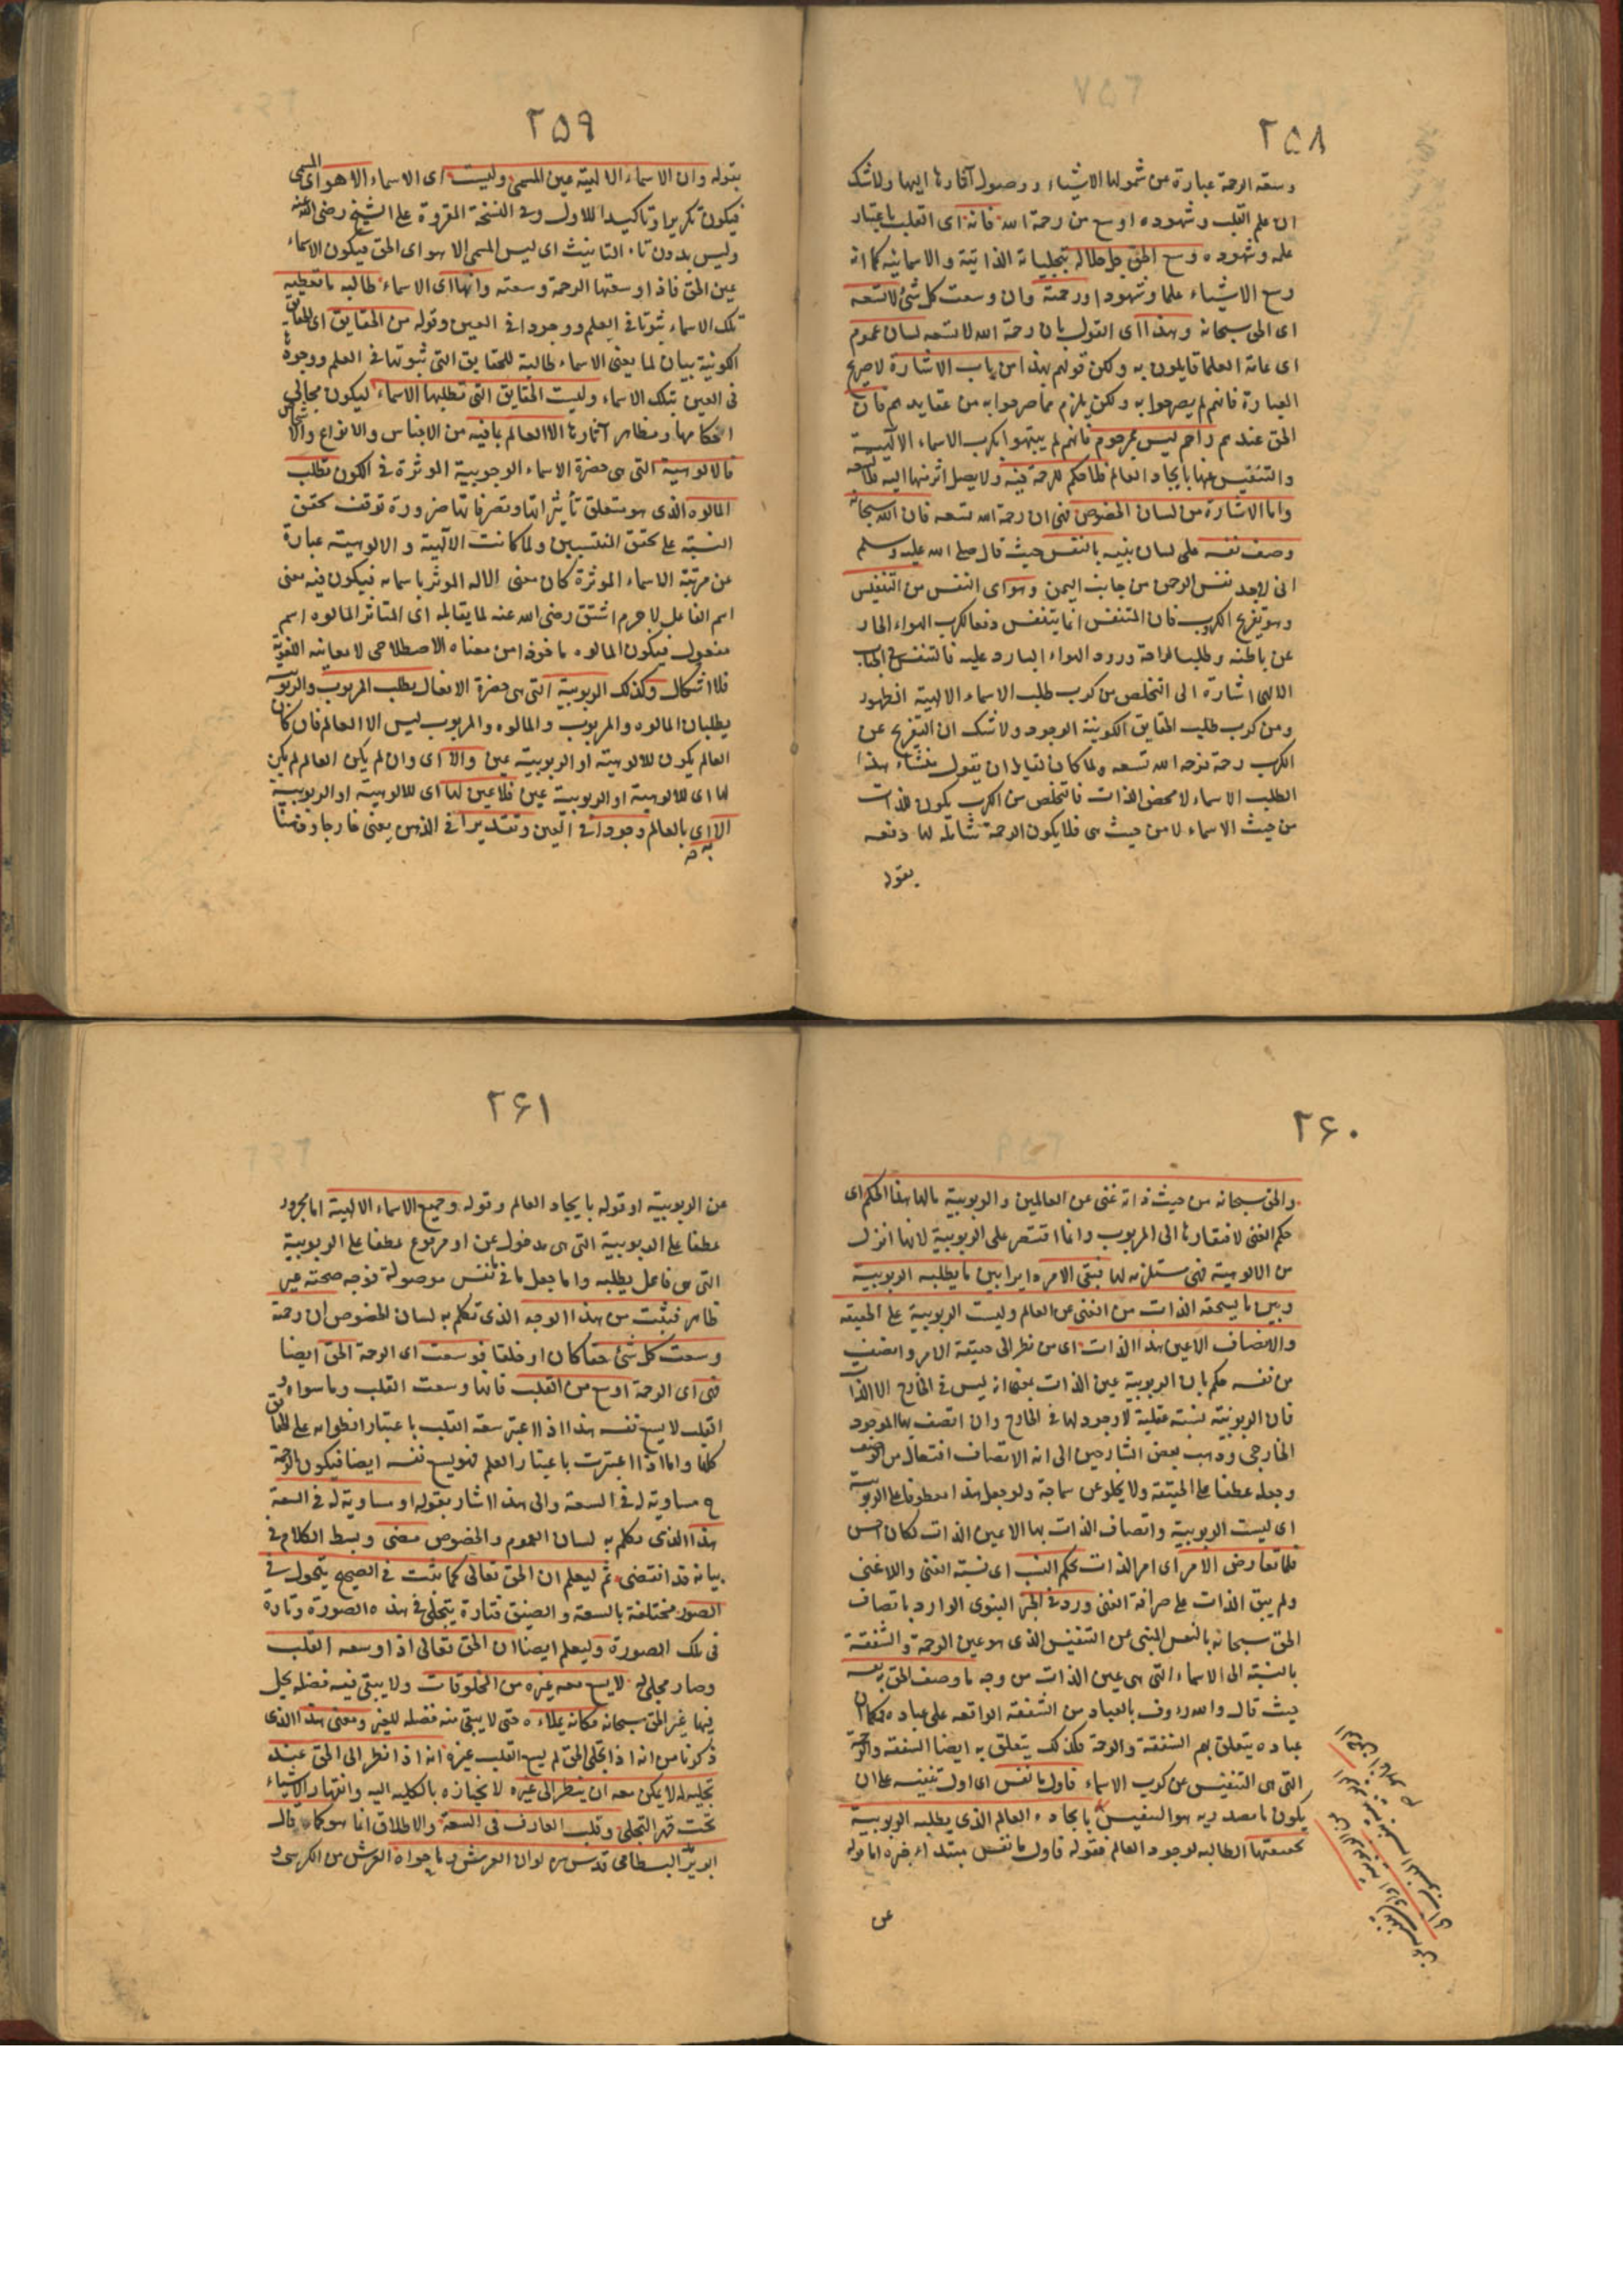 ٢٥٨
وسعة الرحمة عبارة عن شمولها الاشياء ووصول آثارها اليها ولا شك
ان علم القلب وشهوده اوسع من رحمة الله فانه اى القلب باعتبار
علمه وشهوده وسع الحق جل جلاله بتجلياته الذاتية والاسمائية كما انه
وسع الاشياء علما وشهودا ورحمته وان وسعت كل شئ لا تسعه
اى الحق سبحانه وهذا اى القول بان رحمة الله لا تسعه لسان عموم
اى عامة العلما قايلون به ولكن قولهم بهذا من باب الاشارة لا صريح
العبارة فانهم لم يصرحوا به ولكن يلزم مما صرحوا به من عقايدهم فان
الحق عندهم راحم ليس بمرحوم فانهم لم يثبتوا كرب الاسماء الالهية
والتنفيس عنها بايجاد العالم فلا حكم للرحمة فيه ولا يصل اثر منها اليه فلا تسعه
واما الاشارة من لسان الخصوص فهى ان رحمة الله تسعه فان الله سبحانه
وصف نفسه على لسان نبيه بالنفس حيث قال صلى الله عليه وسلم
انى لاجد نفس الرحمن من جانب اليمن وهو اى النفس من التنفيس
وهو تفريج الكروب فان المتنفس انما يتنفس دفعا لكرب الهواء الحار
عن باطنه وطلبا لراحة ورود الهواء البارد عليه فالتنفس فى الجناب
الالهى اشارة الى التخلص من كرب طلب الاسماء الالهية الظهور
ومن كرب طلب الحقايق الكونية الوجود ولا شك ان التفريج عن
الكرب رحمة فرحمة الله تسعه ولما كان لقايل ان يقول منشاء هذا
الطلب الاسماء لا محض الذات فالتخلص من الكرب يكون للذات
من حيث الاسماء لا من حيث هى فلا يكون الرحمة شاملة لها دفعه
بقوله
٢٥٩
بقوله وان الاسماء الالهية عين المسمى وليست اى الاسماء الا هو اى المسمى
فيكون تكريرا وتاكيدا للاول وفى النسخة المقروة على الشيخ رضى الله عنه
وليس بدون تاء التانيث اى ليس المسمى الا هو اى الحق فيكون الاسماء
عين الحق فاذا وسعتها الرحمة وسعته وانها اى الاسماء طالبه ما تعطيه
تلك الاسماء ثبوتا فى العلم ووجودا فى العين وقوله من الحقايق اى الحقايق
الكونية بيان لما يعنى الاسماء طالبة للحقايق التى ثبوتها فى العلم ووجودها
فى العين بتلك الاسماء وليست الحقايق التى تطلبها الاسماء ليكون مجالى
احكامها ومظاهر آثارها الا العالم بما فيه من الاجناس والانواع والاشخاص
فالالوهية التى هى حضرة الاسماء الوجوبية الموثرة فى الكون تطلب
المالوه الذى هو متعلق تأثيراتها وتصرفاتها ضرورة توقف تحقق
النسبة على تحقق المنتسبين ولما كانت الالهية والالوهية عبارة
عن مرتبة الاسماء الموثرة كان معنى الاله الموثر باسمائه فيكون فيه معنى
اسم الفاعل لا جرم اشتق رضى الله عنه لما يقابله اى المتاثر المالوه اسم
مفعول فيكون المالوه ماخوذا من معناه الاصطلاحى لا معانيه اللغوية
فلا اشكال وكذلك الربوبية التى هى حضرة الافعال يطلب المربوب والربوبية
يطلبان المالوه والمربوب والمالوه والمربوب ليس الا العالم فان كان
العالم يكون للالوهية او الربوبية عين والا اى وان لم يكن العالم لم يكن
لها اى للالوهية او الربوبية عين فلا عين لها اى للالوهية او الربوبية
الا به اى بالعالم وجودا فى العين وتقديرا فى الذهن يعنى خارجا وذهنا
٢۶٠
والحق سبحانه من حيث ذاته غنى عن العالمين والربوبية مالها هذا الحكم اى
حكم الغنى لافتقارها الى المربوب وانما اقتصر على الربوبية لانها انزل
من الالوهية فهى مستلزمه لها فبقى الامر دايرا بين ما يطلبه الربوبية
وبين ما يستحقه الذات من الغنى عن العالم وليست الربوبية على الحقيقه
والاتصاف الا عين هذا الذات اى من نظر الى حقيقة الامر وانصف
من نفسه حكم بان الربوبية عين الذات بمعنى انه ليس فى الخارج الا الذات
فان الربوبية نسبة عقلية لا وجود لها فى الخارج وان اتصف بها الموجود
الخارجى وذهب بعض الشارحين الى انه الاتصاف افتعال من الوصف
وجعله عطفا على الحقيقة ولا يخلو عن سماجة ولو جعل هذا معطوفا على الربوبية
اى ليست الربوبية واتصاف الذات بها الا عين الذات لكان احسن
فلما تعارض الامر اى امر الذات بحكم النسب اى نسبة الغنى واللاغنى
ولم يبق الذات على صرافة الغنى ورد فى الخبر النبوى الوارد باتصاف
الحق سبحانه بالنفس المنبى عن التنفيس الذى هو عين الرحمة والشفقة
بالنسبة الى الاسماء التى هى عين الذات من وجه ما وصف الحق به نفسه
حيث قال والله رءوف بالعباد من الشفقة الواقعه على عباده فكما ان
عباده يتعلق بهم الشفقة والرحمة فكذلك يتعلق به ايضا الشفقة والرحمة
التى هى التنفيس عن كرب الاسماء فاول ما نفس اى اول تنفيسه على ان
يكون ما مصدريه هو التنفيس بايجاده العالم الذى يطلبه الربوبية
بحقيقتها الطالبه لوجود العالم فقوله فاول ما نفس مبتداء خبره اما قوله
عن
٢۶١
عن الربوبية او قوله بايجاد العالم وقوله وجميع الاسماء الالهية اما مجرور
عطفا على الربوبية التى هى مدخول عن او مرفوع عطفا على الربوبية
التى هى فاعل يطلبه واما جعل ما فى ما نفس موصولة فوجه صحته غير
ظاهر فيثبت من هذا الوجه الذى تكلم به لسان الخصوص ان رحمة
وسعت كل شئ حقا كان او خلقا فوسعت اى الرحمة الحق ايضا
فهى اى الرحمة اوسع من القلب فانها وسعت القلب وما سواه و
القلب لا يسع نفسه هذا اذا اعتبر سعة القلب باعتبار انطوائه على الحقايق
كلها واما اذا اعتبرت باعتبار العلم فهو يسع نفسه ايضا فيكون الرحمة
ح مساوية له فى السعة والى هذا اشار بقوله او مساوية له فى السعة
هذا الذى تكلم به لسان العموم والخصوص مضى وبسط الكلام فى
بيانه قد انقضى ثم ليعلم ان الحق تعالى كما ثبت فى الصحيح يتحول فى
الصور مختلفة بالسعة والضيق فتارة يتجلى فى هذه الصورة وتارة
فى تلك الصورة وليعلم ايضا ان الحق تعالى اذا وسعه القلب
وصار مجلى له لا يسع معه غيره من المخلوقات ولا يبقى فيه فضلة يحل
فيها غير الحق سبحانه فكانه يملاءه حتى لا يبقى منه فضله للغير ومعنى هذا الذى
ذكرنا من انه اذا تجلى الحق لم يسع القلب غيره انه اذا نظر الى الحق عند
تجليه له لا يمكن معه ان ينظر الى غيره لانحيازه بالكليه اليه وانقهار الاشياء
تحت قهر التجلى وقلب العارف فى السعة والاطلاق انما هو كما قال
ابو يزيد البسطامى قدس سره لو ان العرش وما حواه العرش من الكرسى و